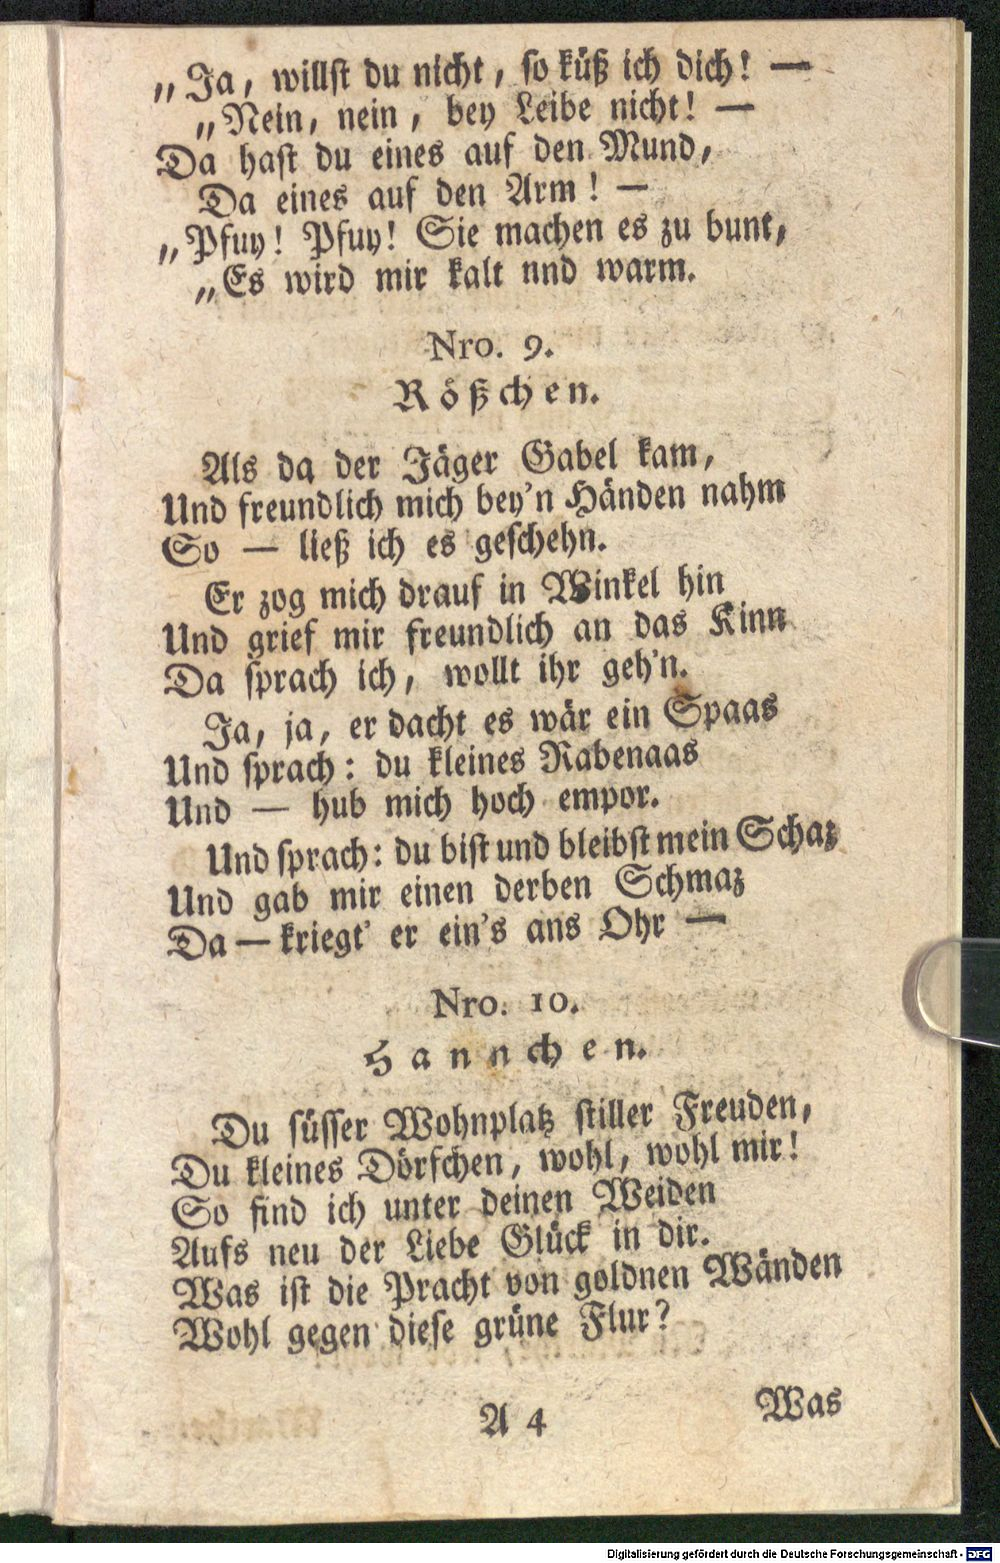 „Ja, willst du nicht, so küß ich dich! —
„Nein, nein, bey Leibe nicht! —
Da hast du eines auf den Mund,
Da eines auf den Arm! —
„Pfuy! Pfuy! Sie machen es zu bunt,
„Es wird mir kalt nnd warm.
Nro. 9.
Rößchen.
Als da der Jäger Gabel kam,
Und freundlich mich bey'n Händen nahm
So — ließ ich es geschehn.
Er zog mich drauf in Winkel hin
Und grief mir freundlich an das Kinn
Da sprach ich, wollt ihr geh'n.
Ja, ja, er dacht es wär ein Spaas
Und sprach: du kleines Rabenaas
Und — hub mich hoch empor.
Und sprach: du bist und bleibst mein Schaz
Und gab mir einen derben Schmaz
Da — kriegt' er ein's ans Ohr —
Nro. 10.
Hannchen.
Du süsser Wohnplatz stiller Freuden,
Du kleines Dörfchen, wohl, wohl mir!
So find ich unter deinen Weiden
Aufs neu der Liebe Glück in dir.
Was ist die Pracht von goldnen Wänden
Wohl gegen diese grüne Flur?
A 4
Was
Digitalisierung gefördert durch die Deutsche Forschungsgemeinschaft - DFG